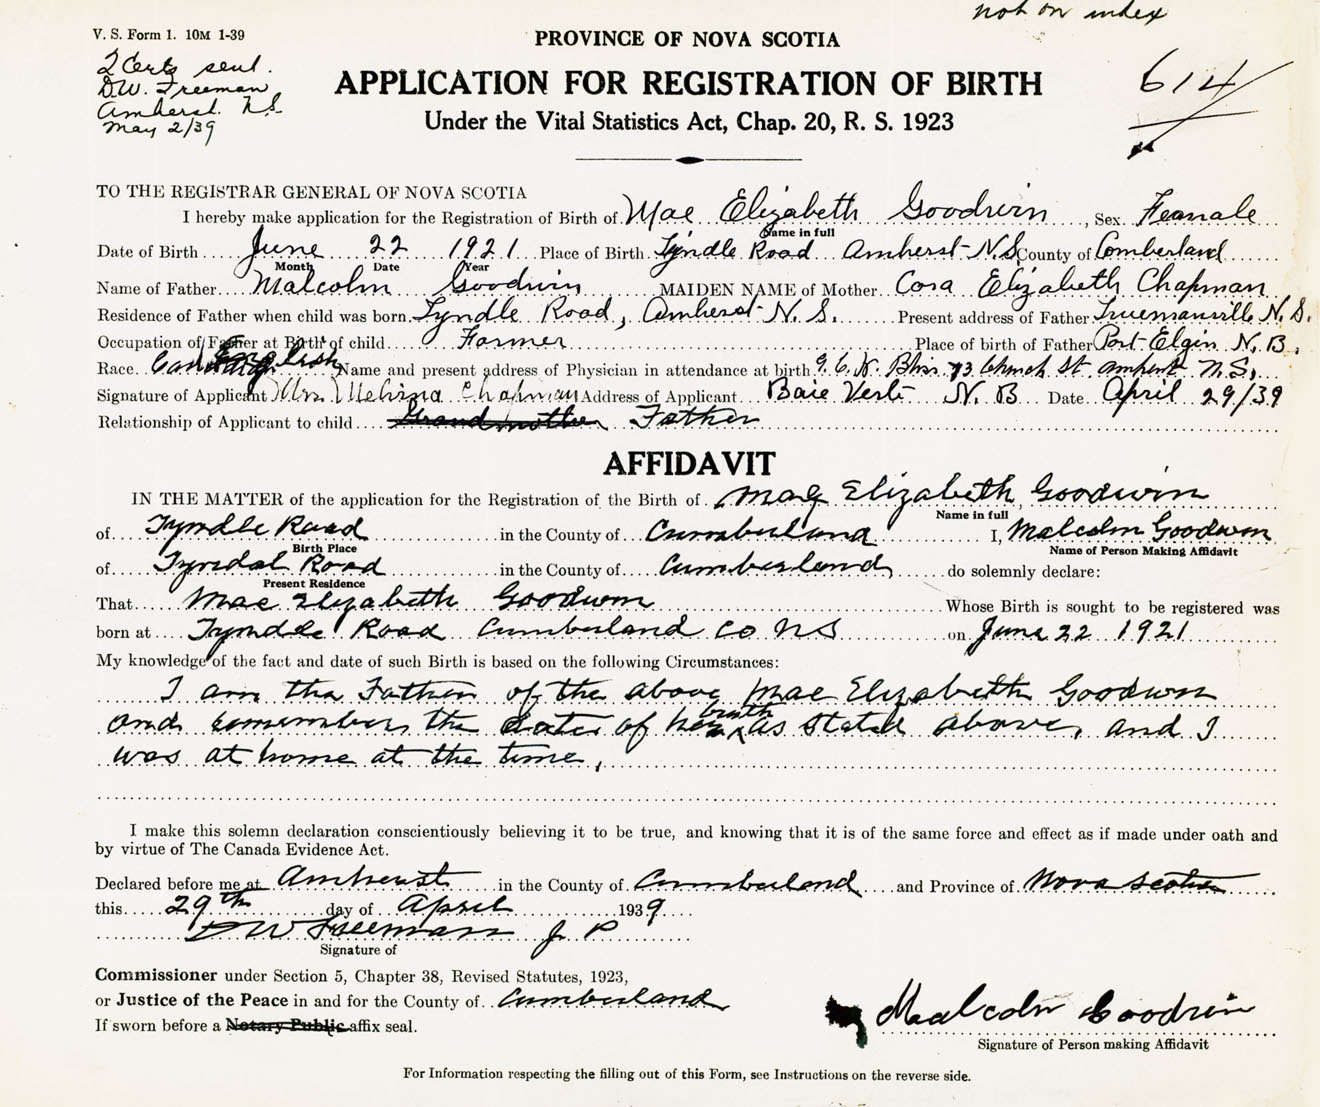 not on index
V. S. Form 1. 10M 1-39
PROVINCE OF NOVA SCOTIA
2 Certs sent.
D.W. Freeman
Amherst. N.S.
May 2/39
APPLICATION FOR REGISTRATION OF BIRTH
614
Under the Vital Statistics Act, Chap. 20, R. S. 1923
TO THE REGISTRAR GENERAL OF NOVA SCOTIA
I hereby make application for the Registration of Birth of Mae Elizabeth Goodwin, Sex Feamale
Name in full
Date of Birth June 22 1921 Place of Birth Tyndle Road Amherst N.S County of Comberland
Month Date Year
Name of Father Malcolm Goodwin MAIDEN NAME of Mother Cora Elizabeth Chapman
Residence of Father when child was born Tyndle Road, Amherst N. S. Present address of Father Truemanville N. S.
Occupation of Father at Birth of child Farmer Place of birth of Father Port Elgin N. B.
Race English Name and present address of Physician in attendance at birth Bliss 73 Church St Amherst N.S.
Signature of Applicant Mrs. Melissa Chapman Address of Applicant Baie Verte N. B Date April 29/39
Relationship of Applicant to child Grandmother Father
AFFIDAVIT
IN THE MATTER of the application for the Registration of the Birth of Mae Elizabeth Goodwin
Name in full
of Tyndle Road in the County of Cumberland I, Malcolm Goodwin
Birth Place Name of Person Making Affidavit
of Tyndal Road in the County of Cumberland do solemnly declare:
Present Residence
That Mae Elizabeth Goodwin Whose Birth is sought to be registered was
born at Tyndle Road Cumberland Co NS on June 22 1921
My knowledge of the fact and date of such Birth is based on the following Circumstances:
I am the Father of the above Mae Elizabeth Goodwin
birth
and remember the date of her as stated above, and I
was at home at the time,
I make this solemn declaration conscientiously believing it to be true, and knowing that it is of the same force and effect as if made under oath and
by virtue of The Canada Evidence Act.
Declared before me at Amherst in the County of Cumberland and Province of Nova Scotia
this 29th day of April 1939
D W Freeman J P
Signature of
Commissioner under Section 5, Chapter 38, Revised Statutes, 1923,
or Justice of the Peace in and for the County of Cumberland
If sworn before a Notary Public affix seal.
Malcolm Goodwin
Signature of Person making Affidavit
For Information respecting the filling out of this Form, see Instructions on the reverse side.